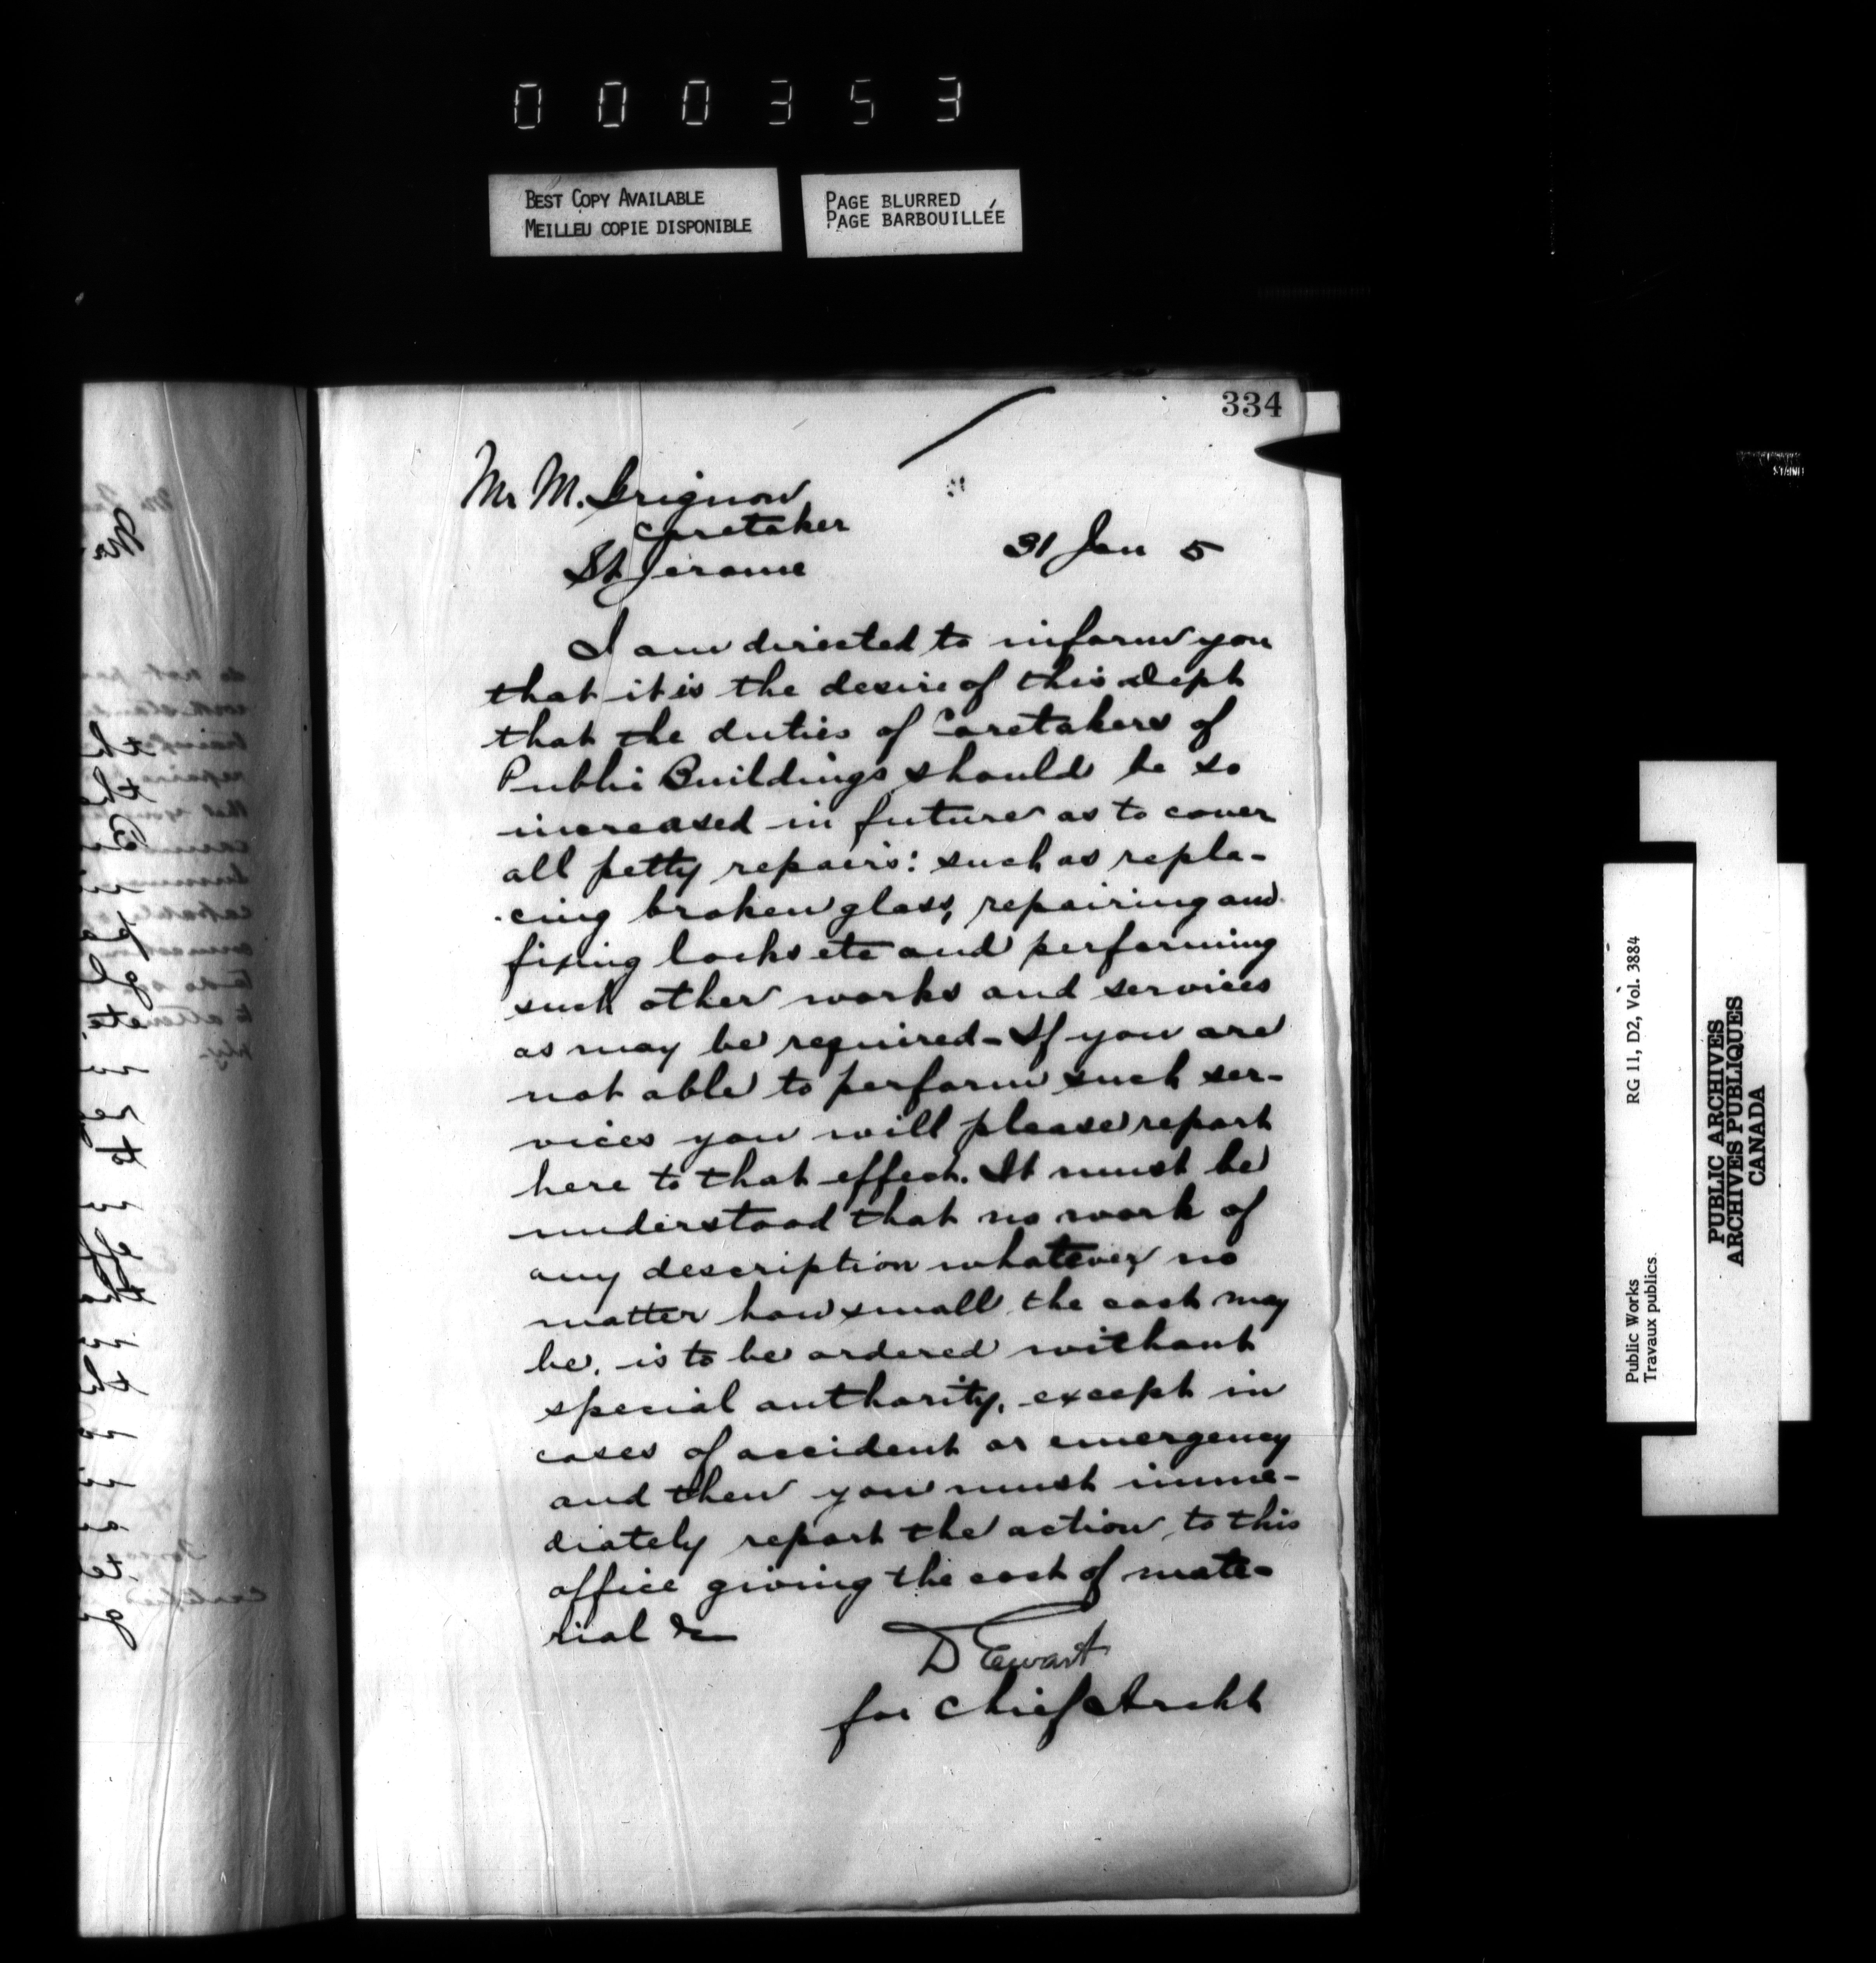 000353
BEST COPY AVAILABLE
MEILLEU COPIE DISPONIBLE
PAGE BLURRED
PAGE BARBOUILLÉE
334
Mr M. Grignon
Caretaker
St Jerome
31 Jan 5
I am directed to inform you
that it is the desire of this Dept
that the duties of Caretakers of
Public Buildings should be so
increased in future as to cover
all petty repairs: such as repla-
cing broken glass, repairing and
fixing locks etc and performing
such other works and services
as may be required - If you are
not able to perform such ser-
vices you will please report
here to that effect. It must be
understood that no work of
any description whatever no
matter how small the cost may
be, is to be ordered without
special authority, except in
cases of accident or emergency
and then you must imme-
diately report the action to this
office giving the cost of mate-
rial &c
D Ewart
for Chief Archt
Public Works
Travaux publics
RG 11, D2, Vol. 3884
PUBLIC ARCHIVES
ARCHIVES PUBLIQUES
CANADA